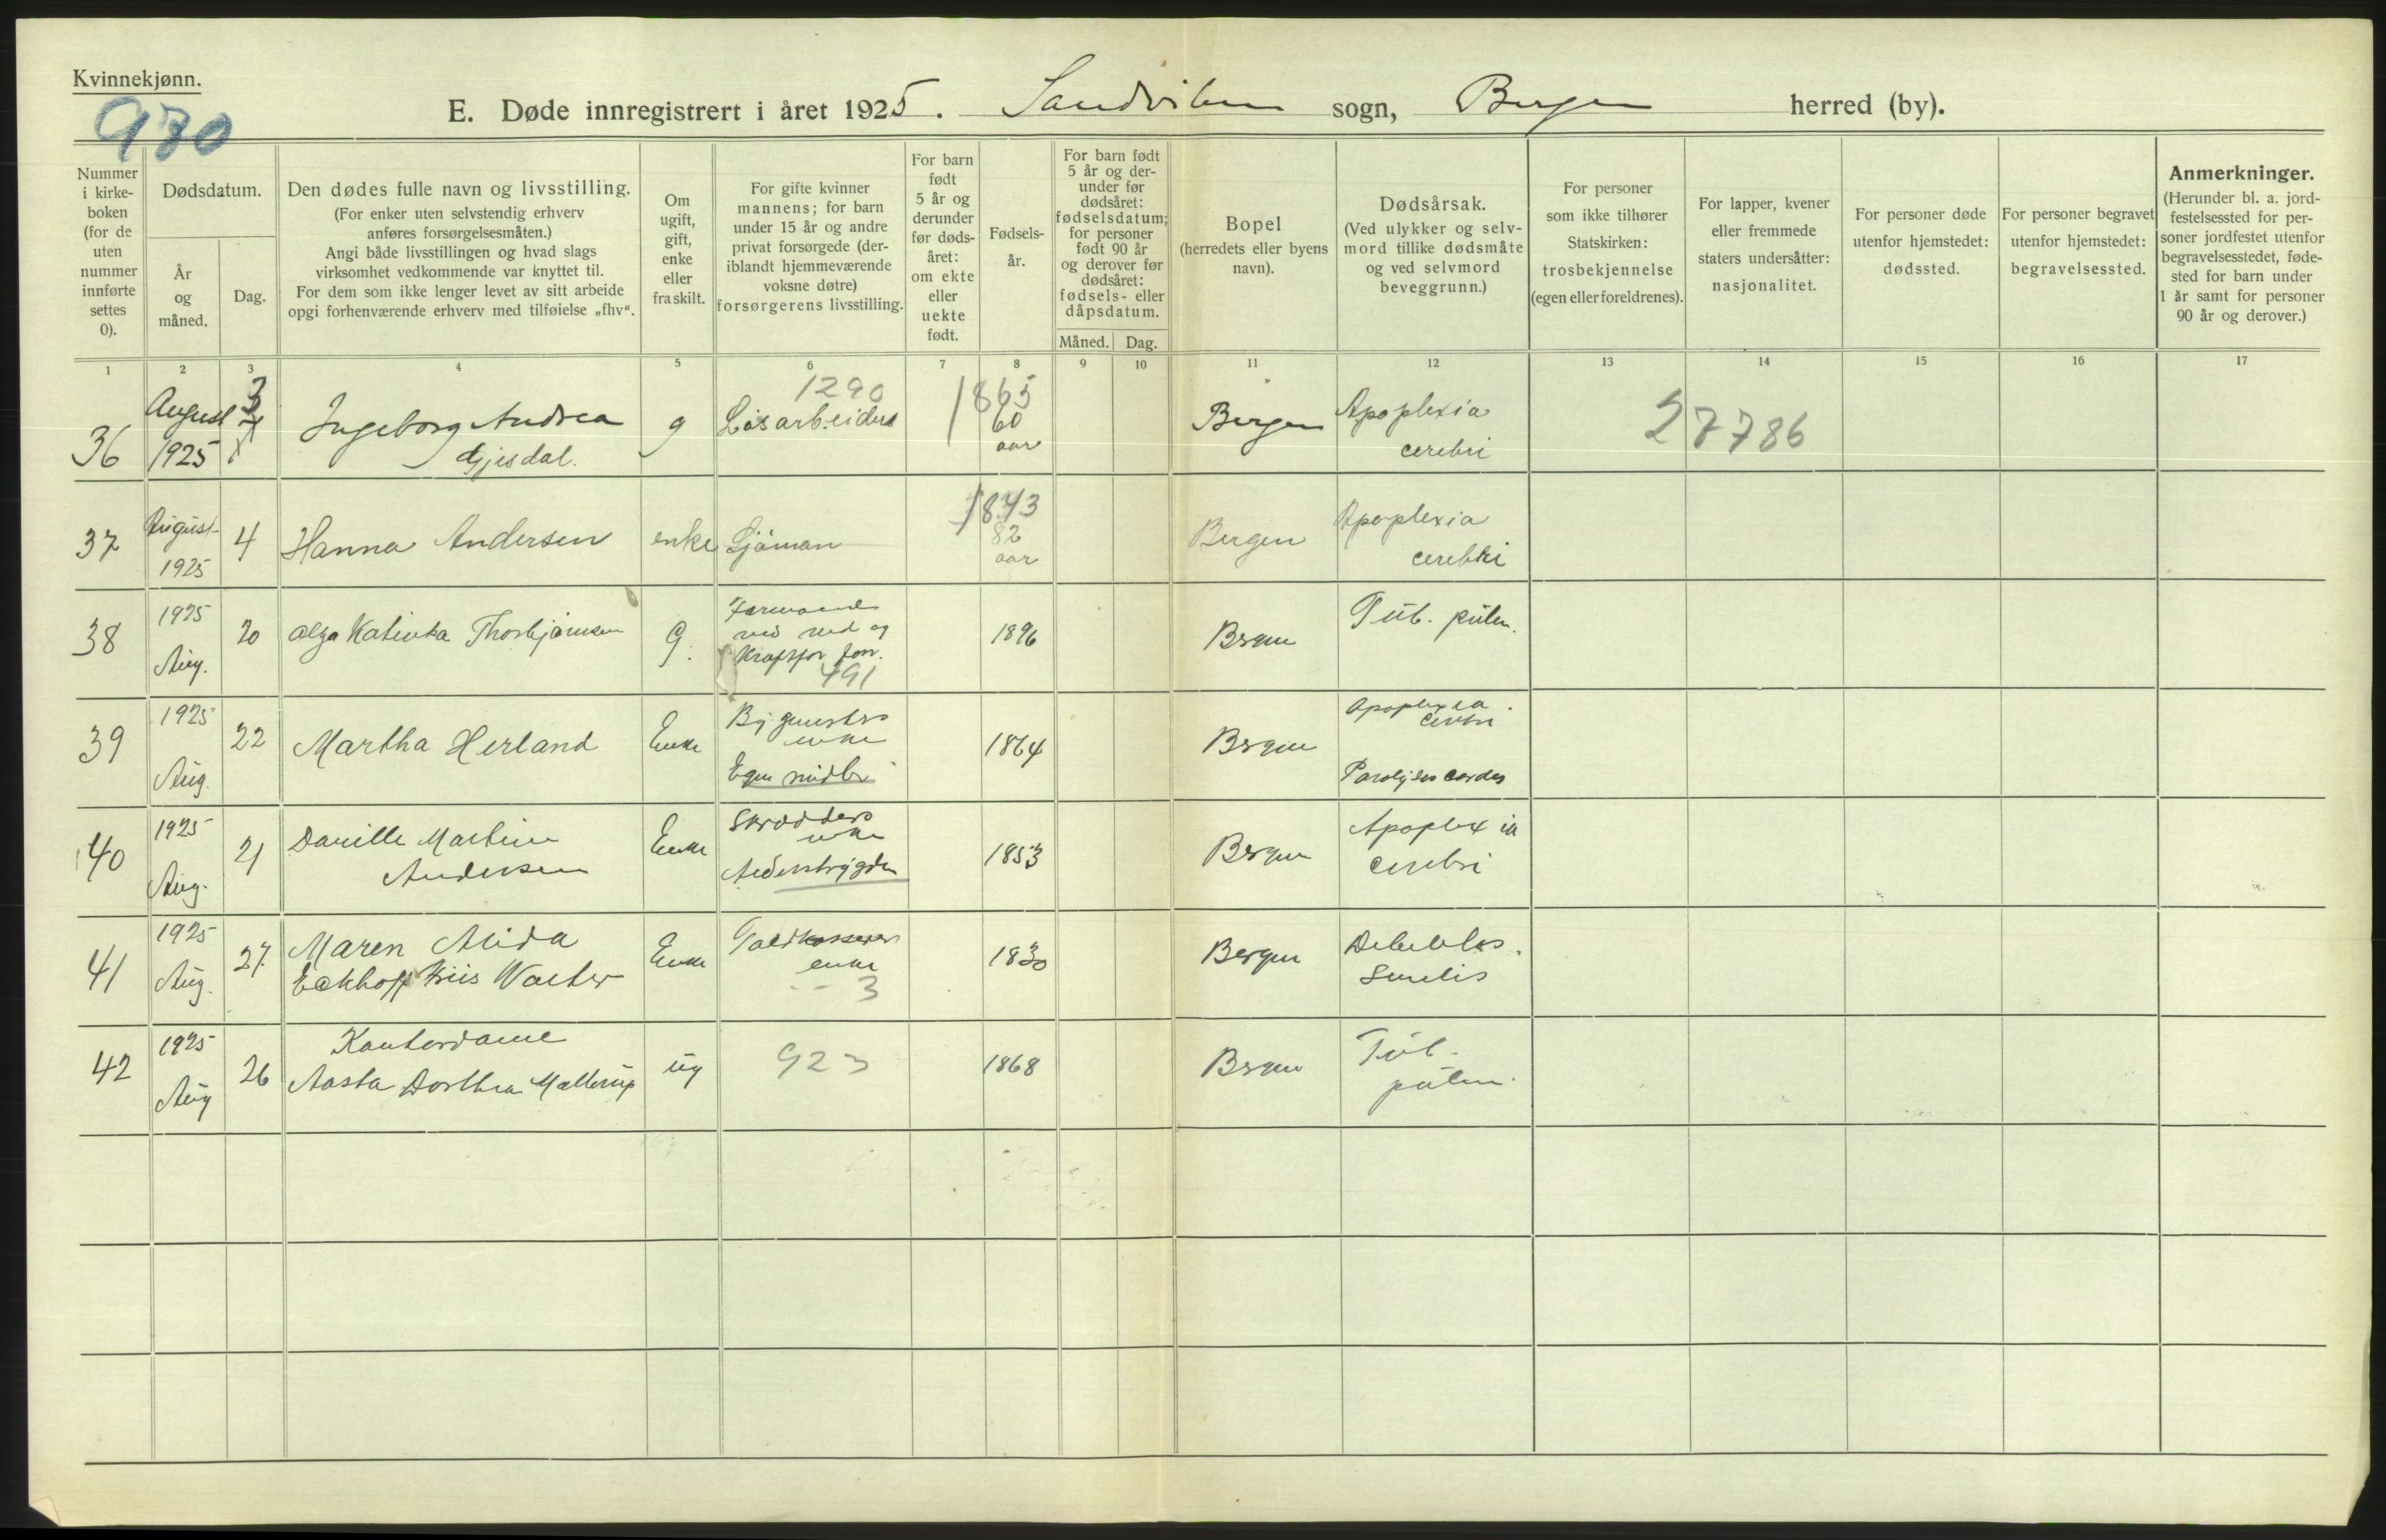 Kvinnekjønn.
930
E. Døde innregistrert i året 1925. Sandviken sogn, Bergen herred (by).
Nummer
i kirke-
boken
(for de
uten
nummer
innførte
settes
0).
Dødsdatum.
År
og
måned.
Dag.
Den dødes fulle navn og livsstilling.
(For enker uten selvstendig erhverv
anføres forsørgelsesmåten.)
Angi både livsstillingen og hvad slags
virksomhet vedkommende var knyttet til.
For dem som ikke lenger levet av sitt arbeide
opgi forhenværende erhverv med tilføielse „fhv“.
Om
ugift,
gift,
enke
eller
fraskilt.
For gifte kvinner
mannens; for barn
under 15 år og andre
privat forsørgede (der-
iblandt hjemmeværende
voksne døtre)
forsørgerens livsstilling.
For barn
født
5 år og
derunder
før døds-
året:
om ekte
eller
uekte
født.
Fødsels-
år.
For barn født
5 år og der-
under før
dødsåret:
fødselsdatum;
for personer
født 90 år
og derover før
dødsåret:
fødsels- eller
dåpsdatum.
Måned. Dag.
Bopel
(herredets eller byens
navn).
Dødsårsak.
(Ved ulykker og selv-
mord tillike dødsmåte
og ved selvmord
beveggrunn.)
For personer
som ikke tilhører
Statskirken:
trosbekjennelse
(egen eller foreldrenes).
For lapper, kvener
eller fremmede
staters undersåtter:
nasjonalitet.
For personer døde
utenfor hjemstedet:
dødssted.
For personer begravet
utenfor hjemstedet:
begravelsessted.
Anmerkninger.
(Herunder bl. a. jord-
festelsessted for per-
soner jordfestet utenfor
begravelsesstedet, føde-
sted for barn under
1 år samt for personer
90 år og derover.)
1 2 3 4 5 6 7 8 9 10 11 12 13 14 15 16 17
36
August
1925
3
Ingeborg Andrea
Gjesdal.
g
1290
Løsarbeider
1865
60
aar
Bergen
Apoplexia
cerebri
27786
37
August
1925
4
Hanna Andersen
enke
Sjöman
1843
82
aar
Bergen
Apoplexia
cerebri
38
1925
Aug.
20
Olga Katinka Thorbjørnsen
g.
Formand
ved ved og
491
1896
Bergen
Tub. pulm.
39
1925
Aug.
22
Martha Herland
Enke
enke
Egne midler
1864
Bergen
Apoplexia
cerebri
Paralysis cordis
40
1925
Aug.
21
Danille Martine
Andersen
Enke
Skrædders
enke
1853
Bergen
Apoplexia
cerebri
41
1925
Aug.
27
Maren Alida
Eckhoff Friis Walter
Enke
Toldkasserers
enke
3
1830
Bergen
Debilitas
Senilis
42
1925
Aug
26
Kontordame
Aasta Dorthea Mallerup
ug
923
1868
Bergen
Tub.
pulm.